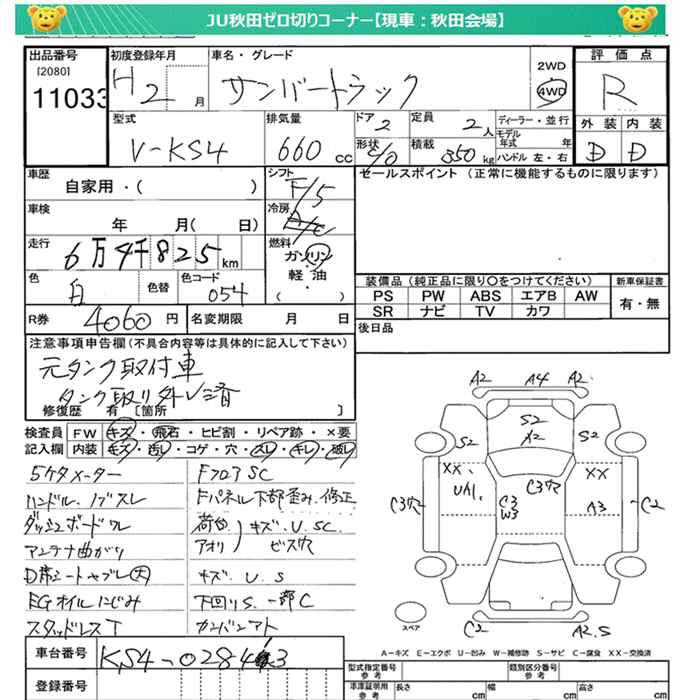 JU秋田ゼロ切りコーナー【現車：秋田会場】
出品番号 初度登録年月 車名・グレード 2WD 評価点
[2080] H2 月 サンバートラック 4WD R
11033
型式 排気量 ドア 定員 ディーラー・並行 外装 内装
V-KS4 660 cc 2 2人 モデル年式 年 D D
形状 積載 350 kg ハンドル 左・右
車歴 シフト セールスポイント (正常に機能するものに限ります)
自家用・( ) F/5
車検 冷房
年 月( 日) A/C
走行 燃料
6万4千825 km ガソリン
色 色替 色コード 軽油
白 054 ( ・ )
装備品 (純正品に限り○をつけてください) 新車保証書
PS PW ABS エアB AW 有・無
SR ナビ TV カワ
R券 4060 円 名変期限 月 日 後日品
注意事項申告欄(不具合内容等は具体的に記入して下さい)
元タンク取付車
タンク取り外し済
修復歴 有 [箇所 ]
検査員 FW キズ・飛石・ヒビ割・リペア跡・×要
記入欄 内装 キズ・汚レ・コゲ・穴・スレ・キレ・破レ
5ケタメーター FフロアSC
ハンドル、ノブスレ Fパネル下部歪み、修正
ダッシュボードワレ 荷台 キズ、U、SC
アンテナ曲がり アオリ ビス穴
D席シートヤブレ大 キズ、U、S
EGオイルにじみ 下回りS、一部C
スタッドレスT カンバンアト
A2 A4 A2
S2
S2 A2 S2
XX XX
U A1 C3穴
C3穴 C3 A3 C2
W3
スペア C2 A2.S
A－キズ E－エクボ U－凹み W－補修跡 S－サビ C－腐食 XX－交換済
車台番号 KS4-0284
登録番号
型式指定番号 類別区分番号
参考 参考
車庫証明用 長さ 幅 高さ
参考 cm cm cm